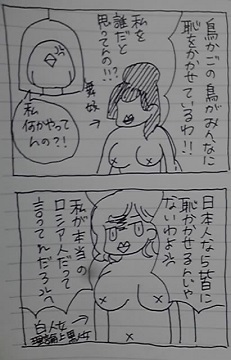 鳥かごの鳥がみんなに
恥をかかせているわ!!
私を
誰だと
思ってんの!!?
私
何かやって
んの?!
日本人なら皆に
恥かかせるんじゃ
ないわよ
私が本当の
ロシア人だって
言ってんだろ
白人女
理論上黒人女